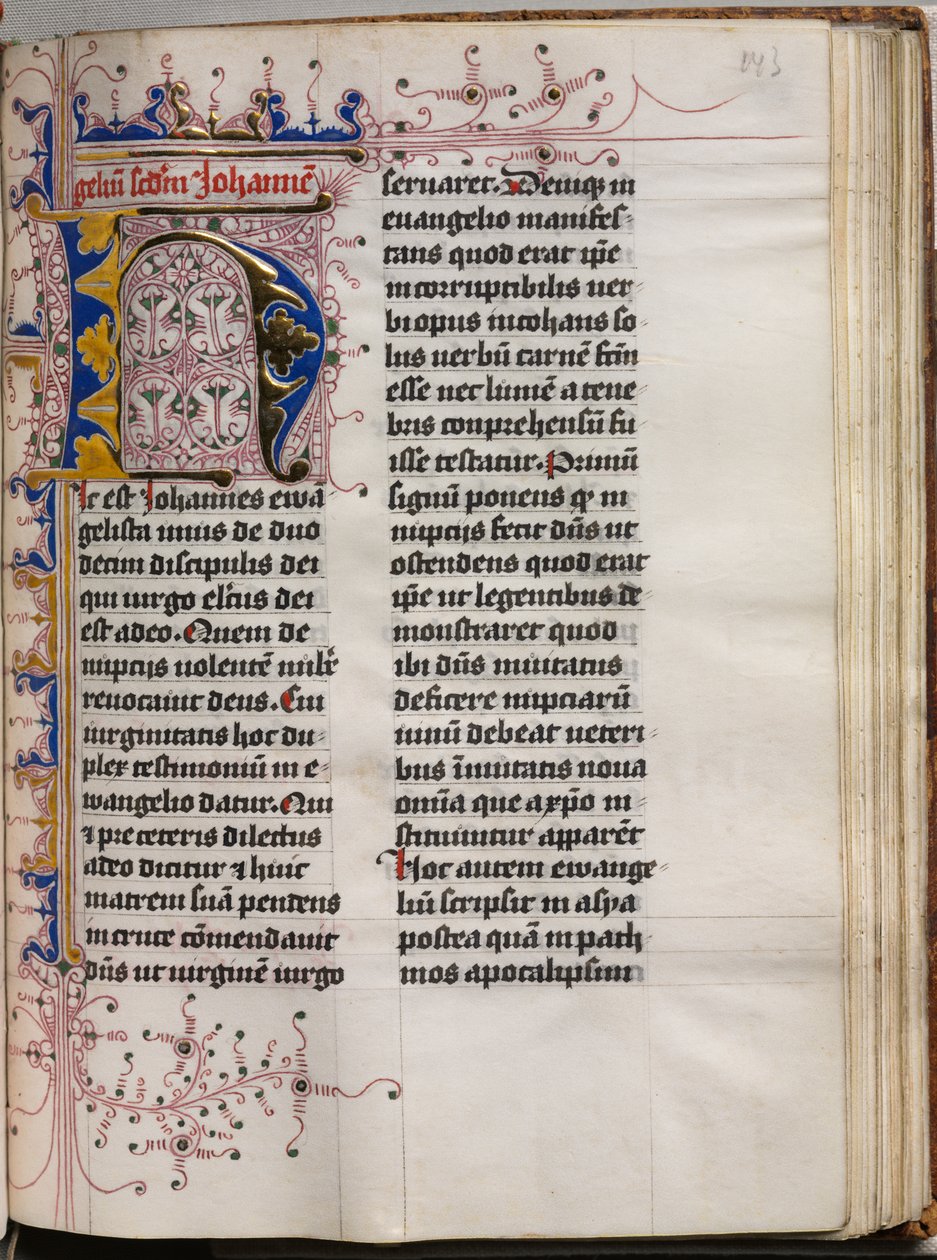 143
geliū scd'm Johannē
H
Ic est Johannes ewā
gelista unus de duo
decim discipulis dei
qui uirgo elc̄us dei
est adeo. Quem de
nuptijs uolentē nub'e
reuocauit deus. Cui
uirginitatis hoc du⸗
plex testimoniū in e⸗
wangelio datur. Qui
⁊ pre ceteris dilectus
adeo dicitur ⁊ huic
matrem suā pendens
in cruce cōmendauit
dn̄s ut uirginē uirgo
seruaret. Deniqꝫ in
euangelio manifes⸗
tans quod erat ip̄e
incorruptibilis uer⸗
bi opus incohans so⸗
lus uerbū carnē fc̄m
esse nec lumē a tene⸗
bris conprehensū fu⸗
isse testatur. Primū
signū ponens qđ in
nuptijs fecit dn̄s ut
ostendens quod erat
ip̄e ut legentibus de⸗
monstraret quod
ibi dn̄s inuitatus
deficere nuptiarū
uinū debeat ueteri⸗
bus īmutatis noua
omīa que a xp̄o in⸗
stituuntur apparēt
Hoc autem ewange⸗
liū scripsit in asya
postea quā in path⸗
mos apocalipsim